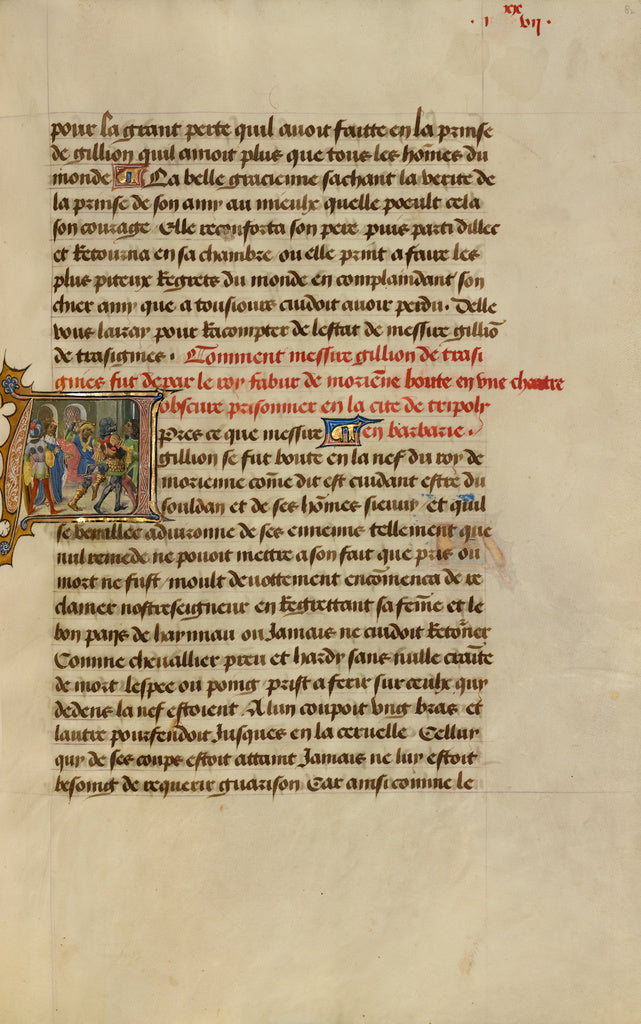 xx
· i vij ·
82
pour la grant perte quil auoit faitte en la prinse
de gillion quil amoit plus que tous les hom̄es du
monde La belle gracienne sachant la verite de
la prinse de son amy au mieulx quelle poeult cela
son courage Elle reconforta son pere puis parti dillec
et Retourna en sa chambre ou elle print a faire les
plus piteux Regretz du monde en complaindant son
chier amy que a tousiours cuidoit auoir perdu. Delle
vous lairay pour Racompter de lestat de messire gilliō
de trasignies. Comment messire gillion de trasi
gnies fut de par le roy fabur de moriēne boute en vne chartre
obscure prisonnier en la cite de tripoly
Pres ce que messire en barbarie.
gillion se fut boute en la nef du roy de
morienne com̄e dit est cuidant estre du
souldan et de ses hom̄es sieuuy et quil
se veu allee aduironne de ses ennemis tellement que
nul remede ne pouoit mettre a son fait que pris ou
mort ne fust moult deuottement encōmenca de re
clamer nostreseigneur en Regrettant sa fem̄e et le
bon pays de haynnau ou Jamais ne cuidoit Retōner
Comme cheuallier preu et hardy sans nulle crainte
de mort lespee ou poing prist a ferir sur ceulx quy
dedens la nef estoient A lun coupoit vng bras et
lautre pourfendoit Jusques en la ceruelle Celluy
quy de ses coups estoit attaint Jamais ne luy estoit
besoing de requerir guarison Car ainsi comme le